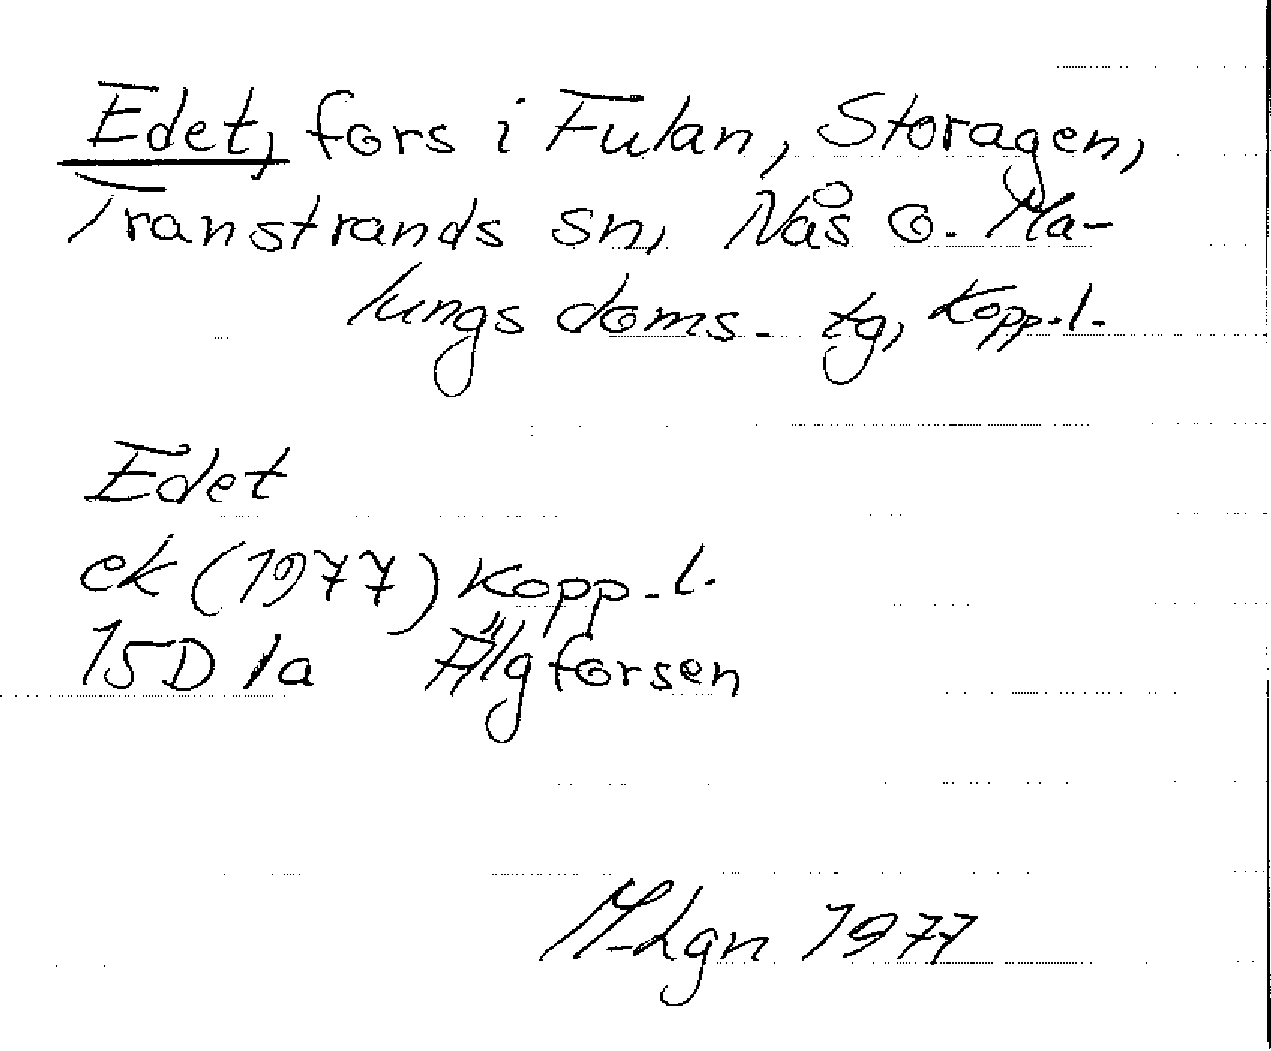 Edet, fors i Fulan, Storagen,
Transtrands sn, Nås o. Ma-
lungs doms. tg, Kopp.l.
Edet
ek (1977) Kopp.l.
15D 1a Älgforsen
M-Lgn 1977